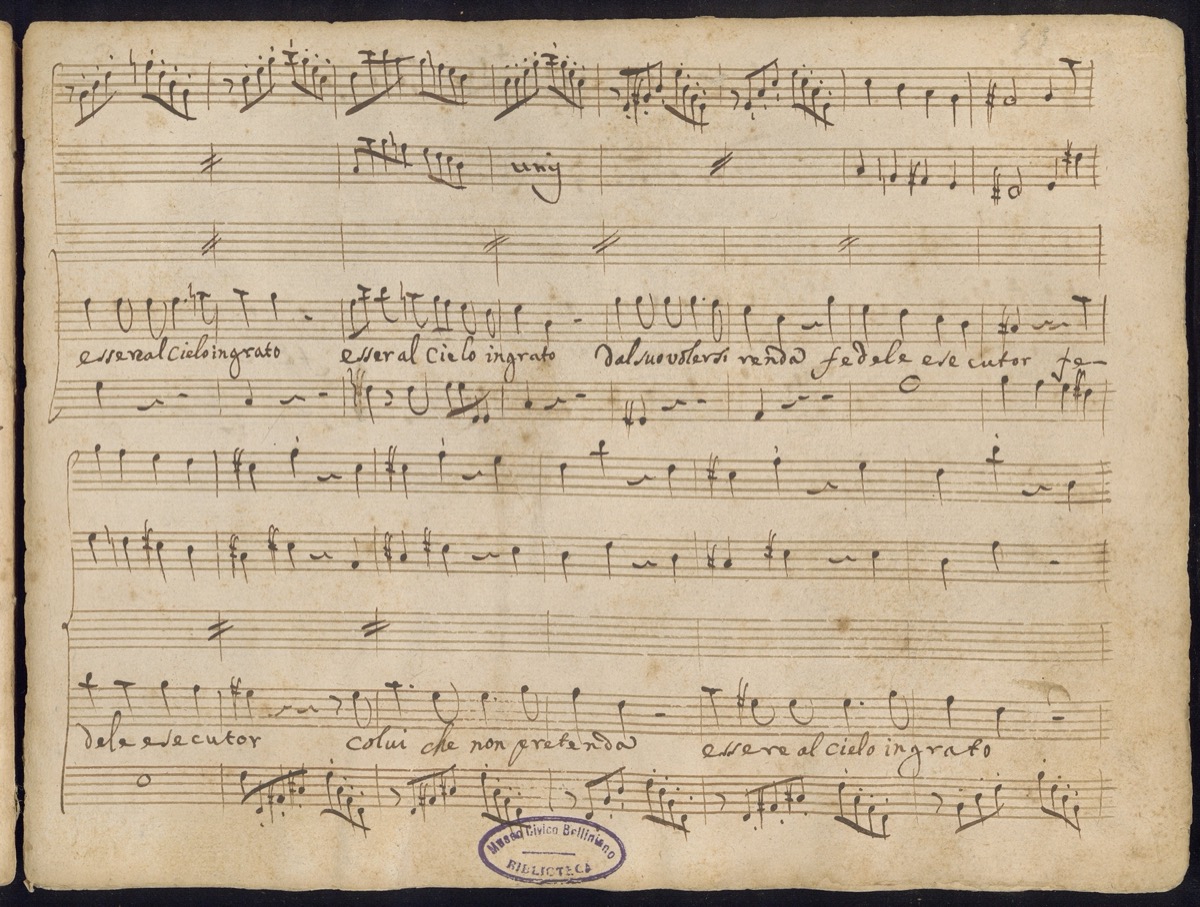 53
unis
essere al Cielo ingrato esser al Cielo ingrato Dal suo volersi renda fedele esecutor fe-
dele esecutor colui che non pretenda essere al cielo ingrato
Museo Civico Belliniano
BIBLIOTECA